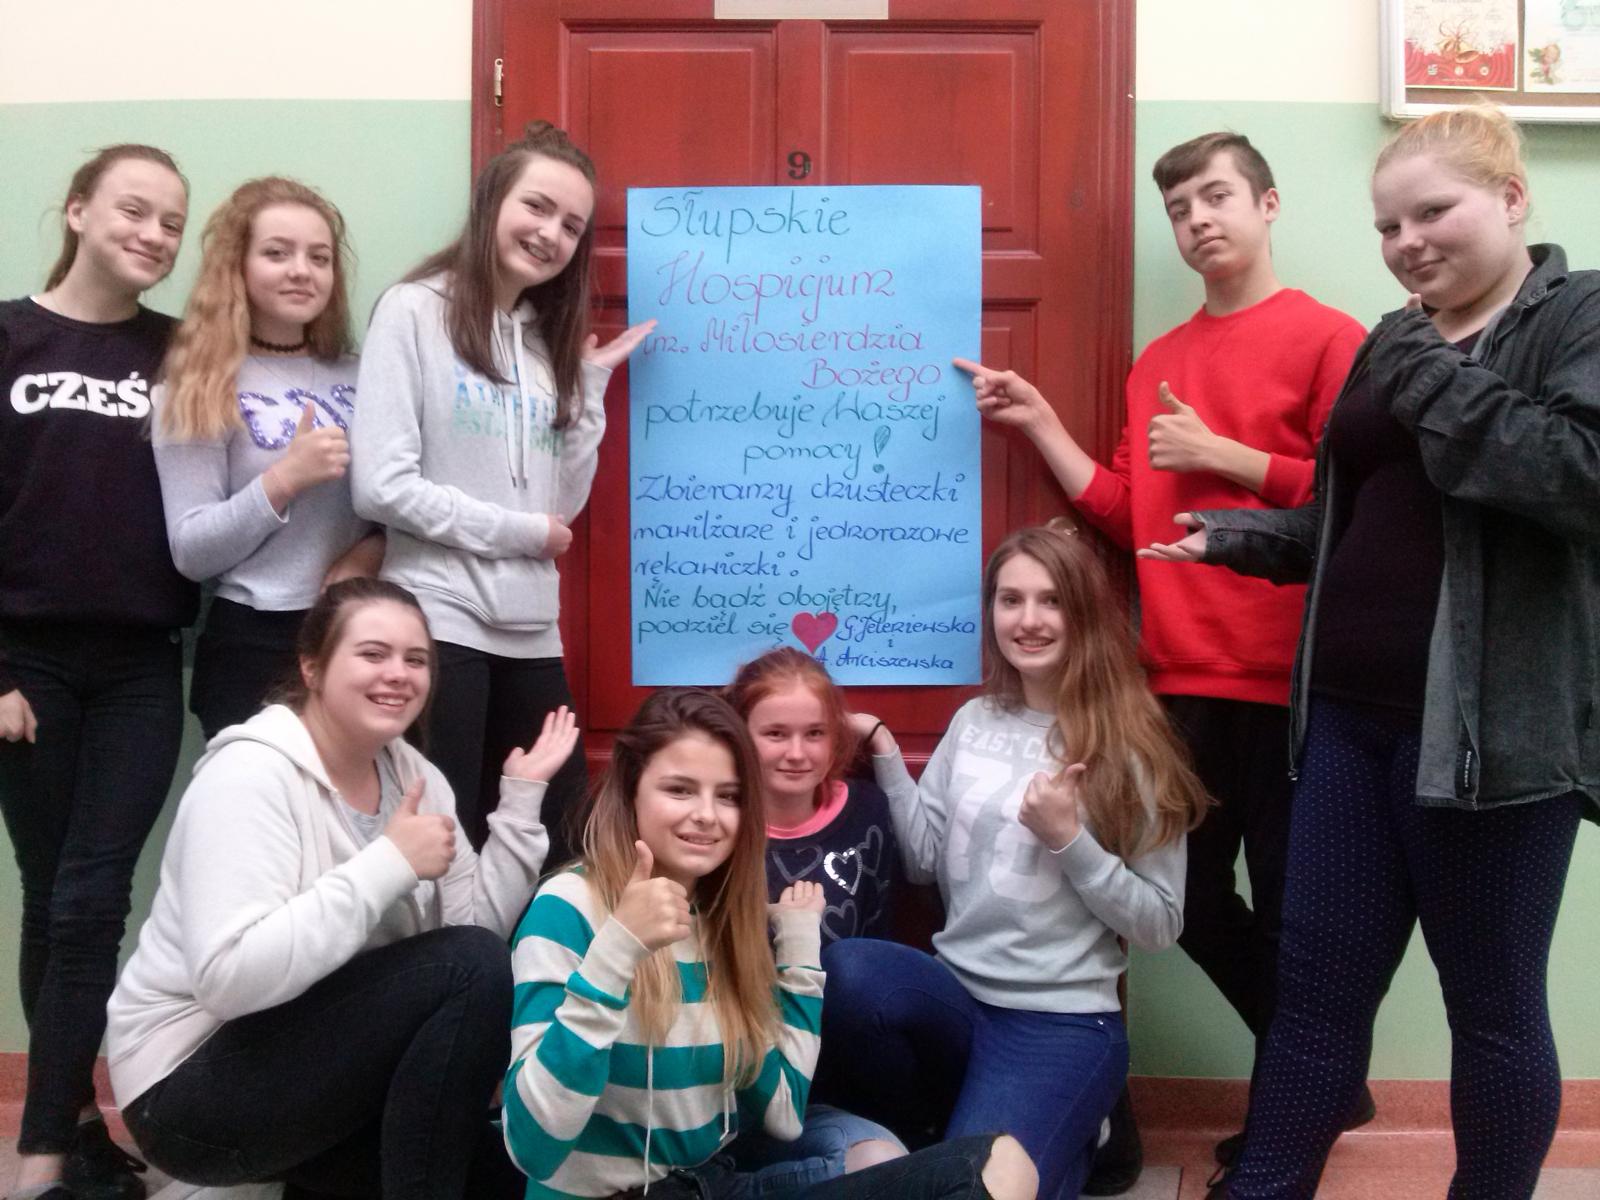 9
Słupskie
Hospicjum
im. Miłosierdzia
Bożego
potrzebuje Waszej
pomocy!
Zbieramy chusteczki
nawilżane i jednorazowe
rękawiczki.
Nie bądź obojętny,
podziel się ♥ G. Jeleniewska
i
A. Arciszewska
CZEŚ
ATHLETI
EAST CO
78